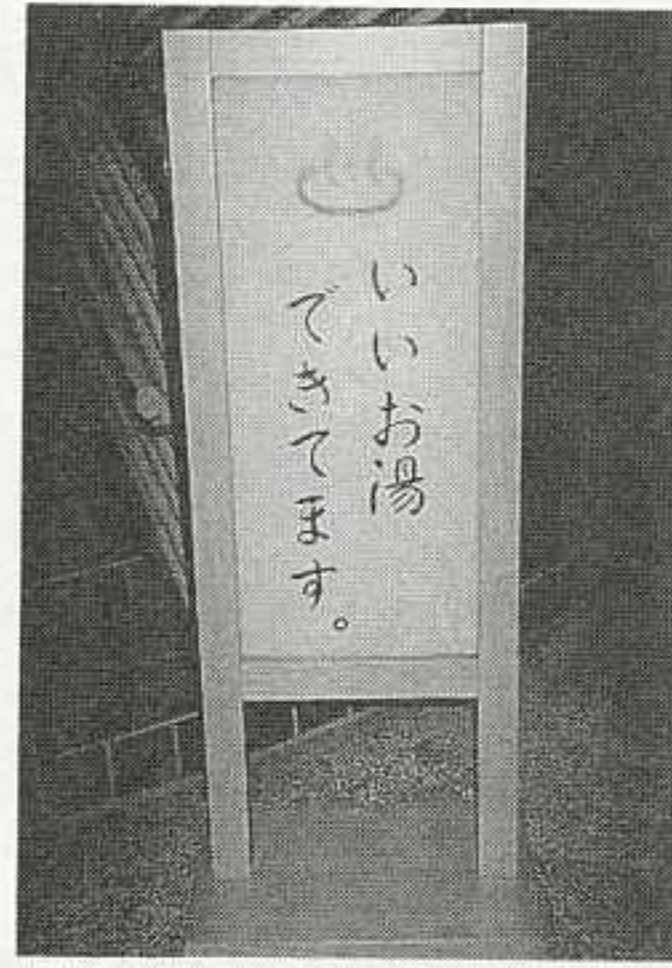 いいお湯
できてます。